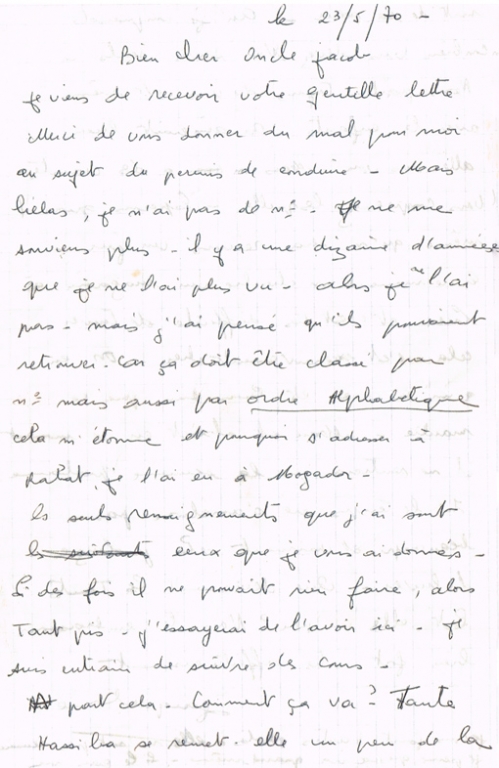 le 23/5/70 -
Bien cher Oncle Jacob
Je viens de recevoir votre gentille lettre
Merci de vous donner du mal pour moi
au sujet du permis de conduire - Mais
hélas, je n'ai pas de nº - Je ne me
souviens plus - il y a une dizaine d'années
que je ne l'ai plus vu - alors je ne l'ai
pas - mais j'ai pensé qu'ils pouvaient
retrouver. Car ça doit être classé par
nº mais aussi par ordre Alphabétique
cela m'étonne et pourquoi s'adresser à
Rabat, je l'ai eu à Mogador -
les seuls renseignements que j'ai sont
ceux que je vous ai donnés -
Si des fois il ne pouvait rien faire, alors
Tant pis - j'essayerai de l'avoir ici - je
suis entrain de suivre des cours -
part cela - Comment ça va ? Tante
Hassiba se remet - elle un peu de la